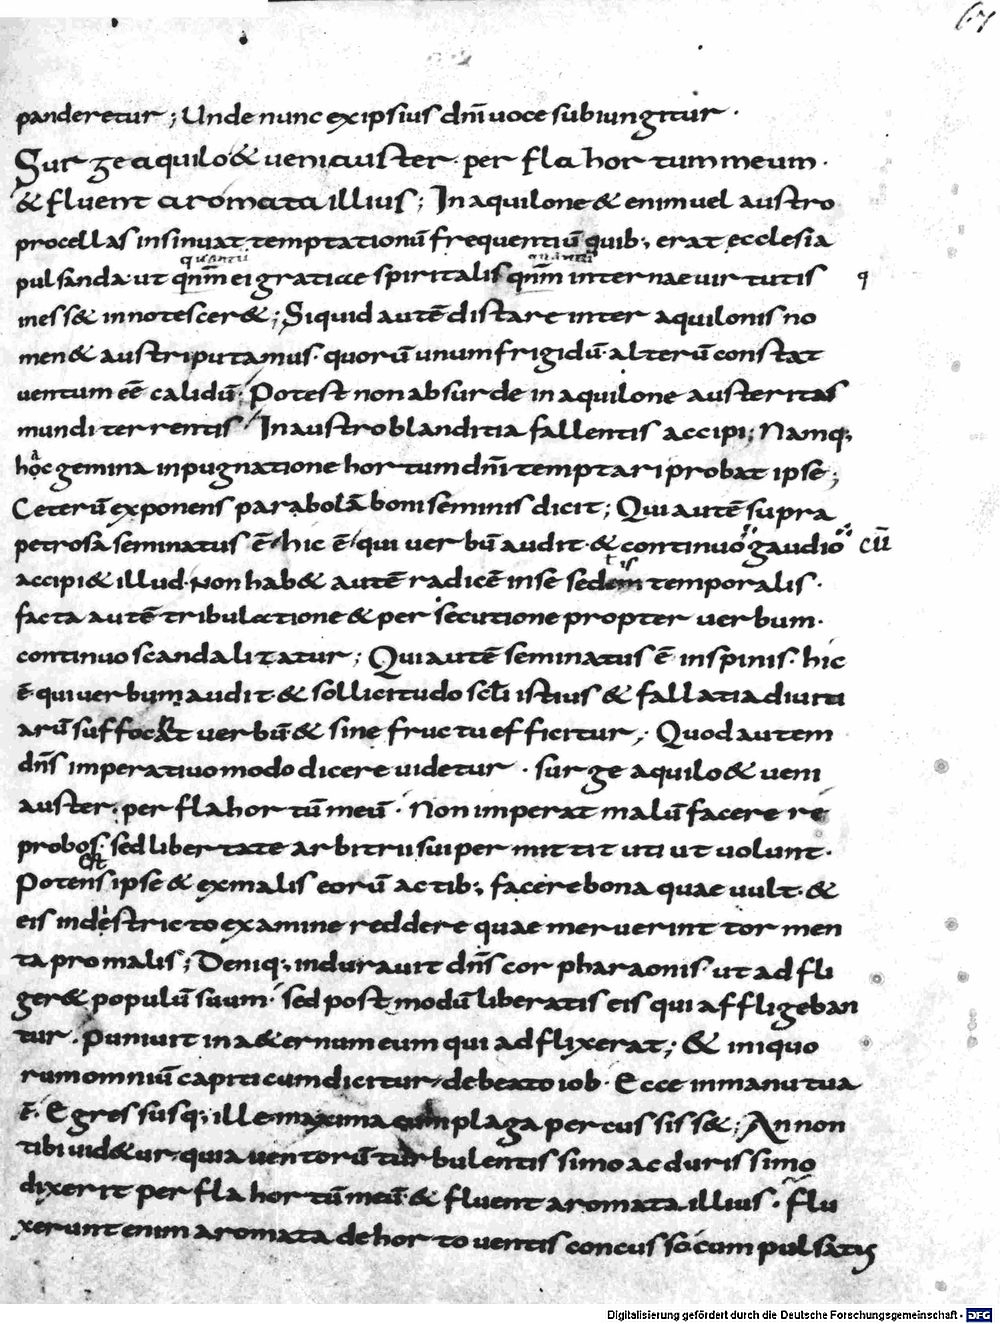 67
panderetur; Unde nunc ex ipsius dñi uoce subiungitur.
Surge aquilo & ueni auster. per fla hortum meum.
& fluent aromata illius; In aquilone & enim uel austro
procellas insinuat temptationū frequentiū quib; erat ecclesia
quantū quantū
pulsanda. ut qnm̄ ei gratiae spiritalis qnm̄ internae uirtutis q
iness& innotescer&; Siquid autē distare inter aquilonis no
men & austri putamus. quorū unum frigidū. alterū constat
uentum eē calidū. Potest non absurde in aquilone austeritas
mundi terrentis In austro blanditia fallentis accipi; Namq;
hoc gemina inpugnatione hortum dñi temptari probat ipse;
Ceterū exponens parabolā boni seminis dicit; Qui autē supra
petrosa seminatus ē hic ē qui uerbū audit. & continuo gaudio cū
accipi& illud. Non hab& autē radicē in se sed temporalis.
facta autē tribulatione & persecutione propter uerbum.
continuo scandalizatur; Qui autē seminatus ē in spinis. hic
ē qui uerbum audit. & sollicitudo scli istius & fallatia diuiti
arū suffocat uerbū. & sine fructu efficitur; Quod autem
dñs imperatiuo modo dicere uidetur. surge aquilo & ueni
auster. per fla hortū meū. Non imperat malū facere re
probos. sed libertate arbitrii sui permittit uti ut uolunt.
Potens ipse & ex malis eorū actib; facere bona quae uult. &
eis indestricto examine reddere quae meruerint tormen
ta pro malis; Deniq; indurauit dñs cor pharaonis. ut adfli
ger& populū suum. sed postmodū liberatis eis qui affligeban
tur. Puniuit in a&ernum eum qui adflixerat; & iniquo
rum omniū capiti cum dicitur de beato iob. Ecce in manu tua
ē. Egressusq; ille maxima eum plaga percussiss&; An non
tibi uid&ur. quia uentorū turbulentissimo ac durissimo
dixerit per fla hortū meū. & fluent aromata illius. flu
xerunt enim aromata de horto uentis concusso. cum pulsatis
Digitalisierung gefördert durch die Deutsche Forschungsgemeinschaft - DFG